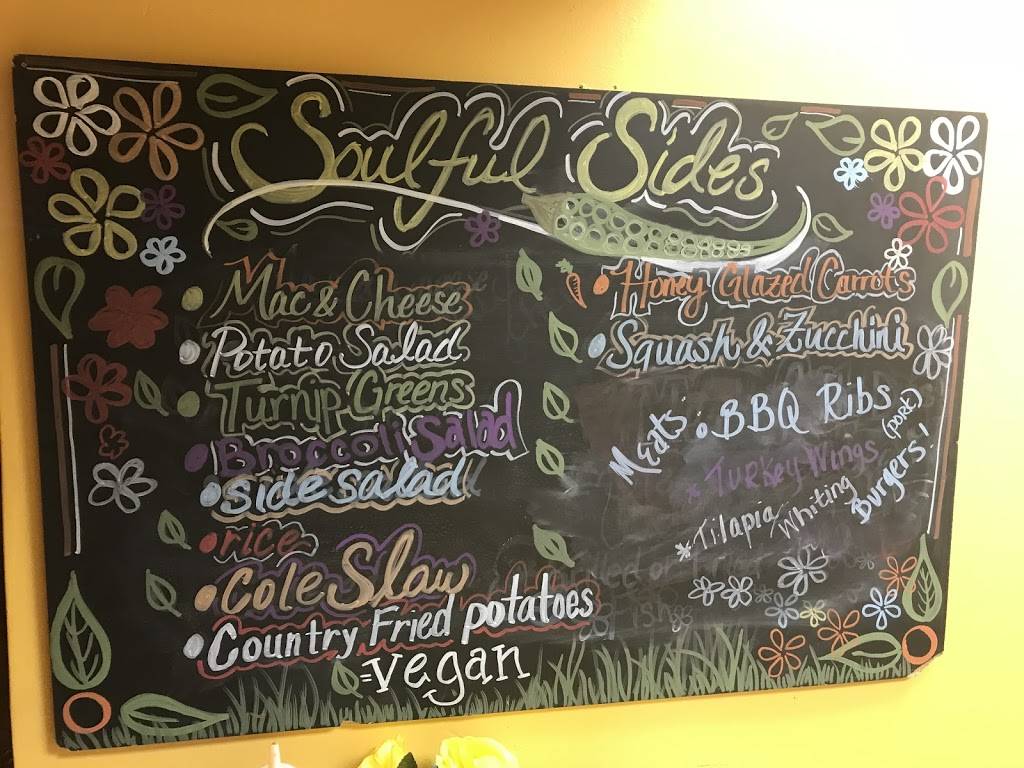 Soulful Sides
Mac & Cheese
Potato Salad
Turnip Greens
Broccoli Salad
side salad
rice
Cole Slaw
Country Fried potatoes
=vegan
Honey Glazed Carrots
Squash & Zucchini
Meats:
BBQ Ribs
(pork)
* Turkey Wings
* Tilapia/Whiting
Burgers!